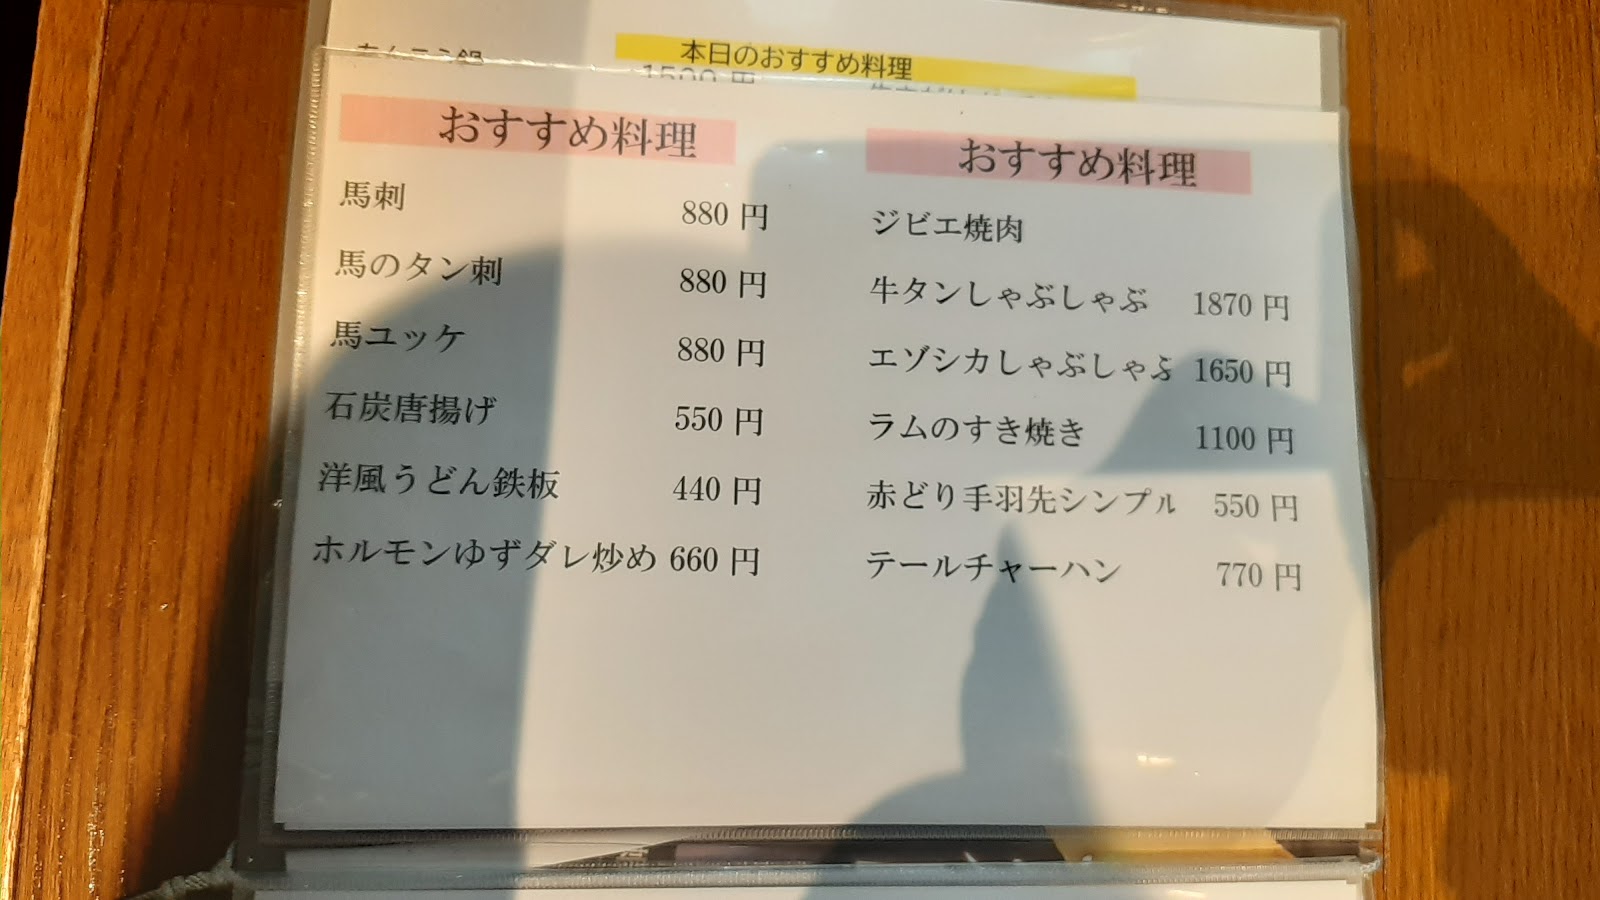 本日のおすすめ料理
1500 円
おすすめ料理
馬刺 880 円
馬のタン刺 880 円
馬ユッケ 880 円
石炭唐揚げ 550 円
洋風うどん鉄板 440 円
ホルモンゆずダレ炒め 660 円
おすすめ料理
ジビエ焼肉
牛タンしゃぶしゃぶ 1870 円
エゾシカしゃぶしゃぶ 1650 円
ラムのすき焼き 1100 円
赤どり手羽先シンプル 550 円
テールチャーハン 770 円